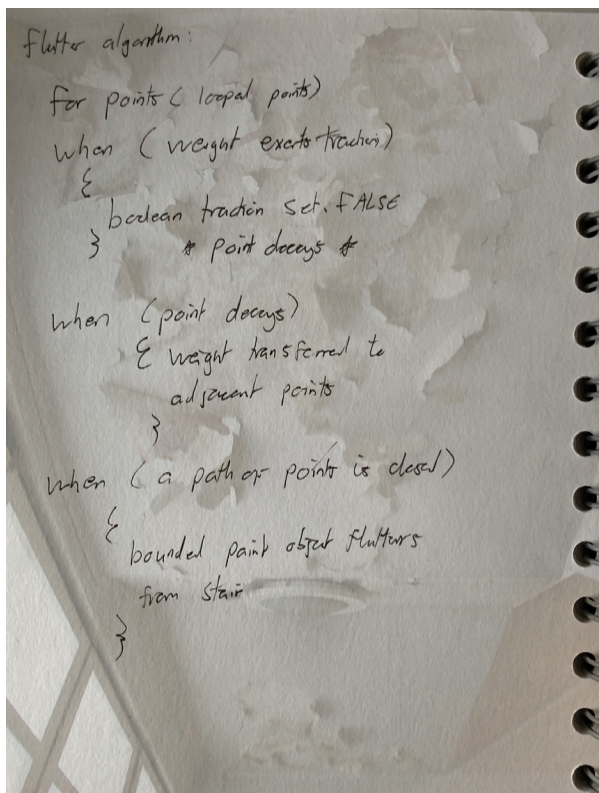 flutter algorithm:
for points ( looped points)
when ( weight exerts traction)
{
boolean traction set. FALSE
}
* point decays *
when (point decays)
{ weight transferred to
adjacent points
}
when ( a path of points is closed)
{
bounded paint object flutters
from stair
}